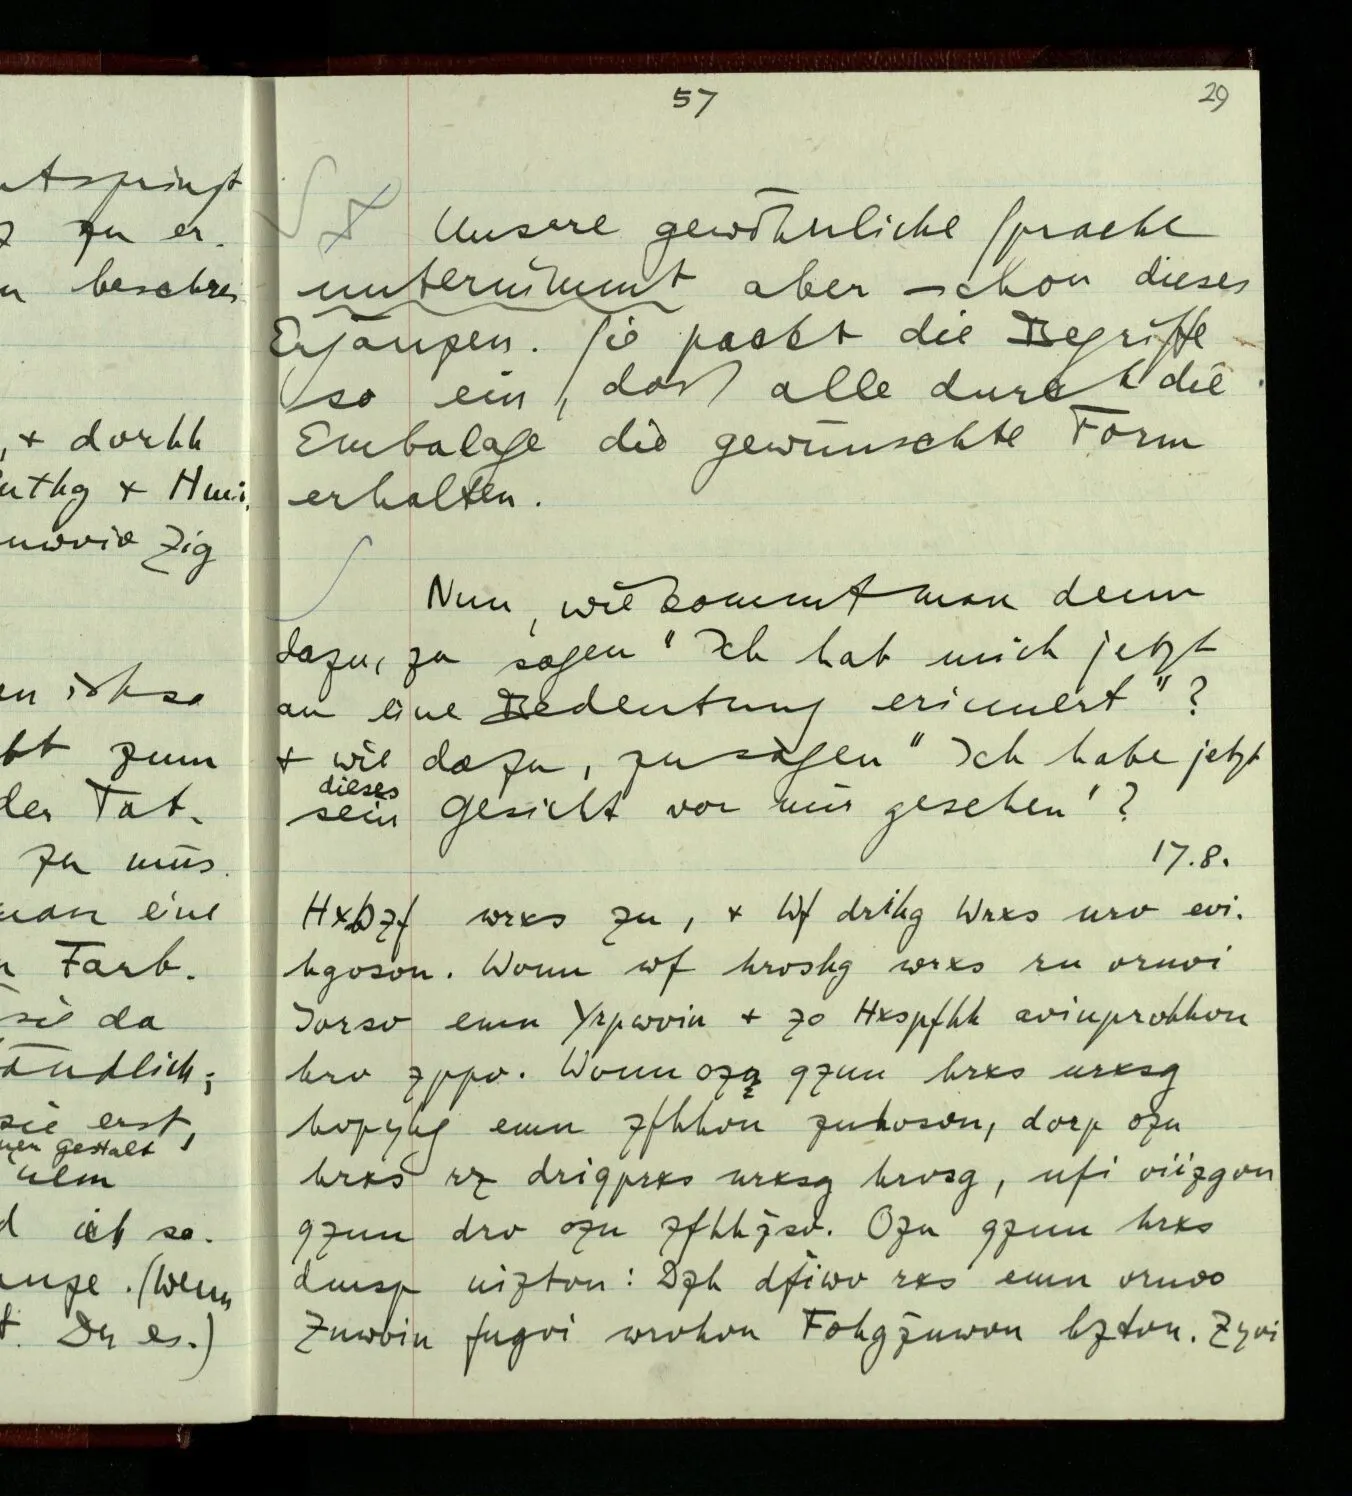 ntspringt
zu er-
n beschrei
, + dorhh
uthg + Hmi
uwvio Zig
en ist so
bt zum
der Tat-
zu müs-
man eine
n Farb-
sie da
ändlich;
sie erst,
nen Gestalt
ulm
d ich so-
anze. (Wenn
t. Du es.)
57
29
Unsere gewöhnliche Sprache
unternimmt aber schon dieses
Ergänzen. Sie packt die Begriffe
so ein, daß alle durch die
Embalage die gewünschte Form
erhalten.
Nun, wie kommt man denn
dazu, zu sagen "Ich hab mich jetzt
an eine Bedeutung erinnert"?
+ wie dazu, zu sagen "Ich habe jetzt
dieses
sein Gesicht vor mir gesehen"?
17.8.
wrxs zu, + Wf drihg Wrxs nrv evi-
hgoson. Wonn wf hroshg wrxs rn ornvi
Jorso emn Yrpwvin + zo Hxspfhh avinprohhon
hrv zppv. Wonn ozn qznn hrxs nrxsg
hopyhg emn zfhhon znhoson, dorp ozn
hrxs rz driqprxs nrxsg hrosg, nfi viizgon
qznn drv ozn zfhhzso. Ozn qznn hrxs
dmsp nizton: Dzh dfiwv rxs emn ornoo
Znwvin fngvi wrohon Fohgznwon hzton. Zyvi